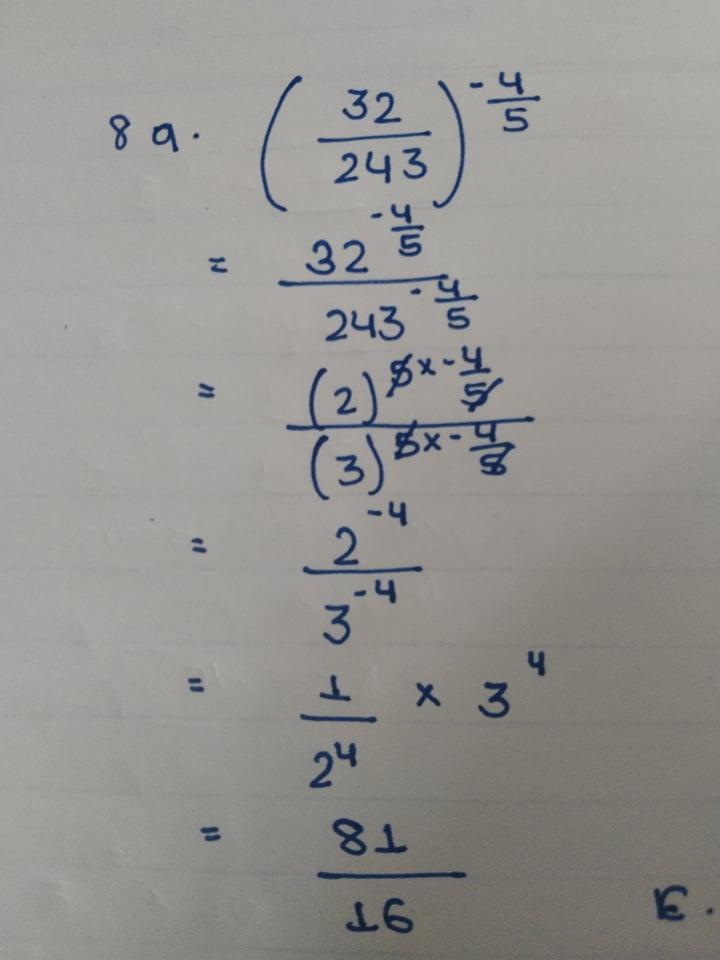 8 a. (32/243)^(-4/5)
= 32^(-4/5) / 243^(-4/5)
= (2)^(5x-4/5) / (3)^(5x-4/5)
= 2^(-4) / 3^(-4)
= 1/2^4 x 3^4
= 81/16